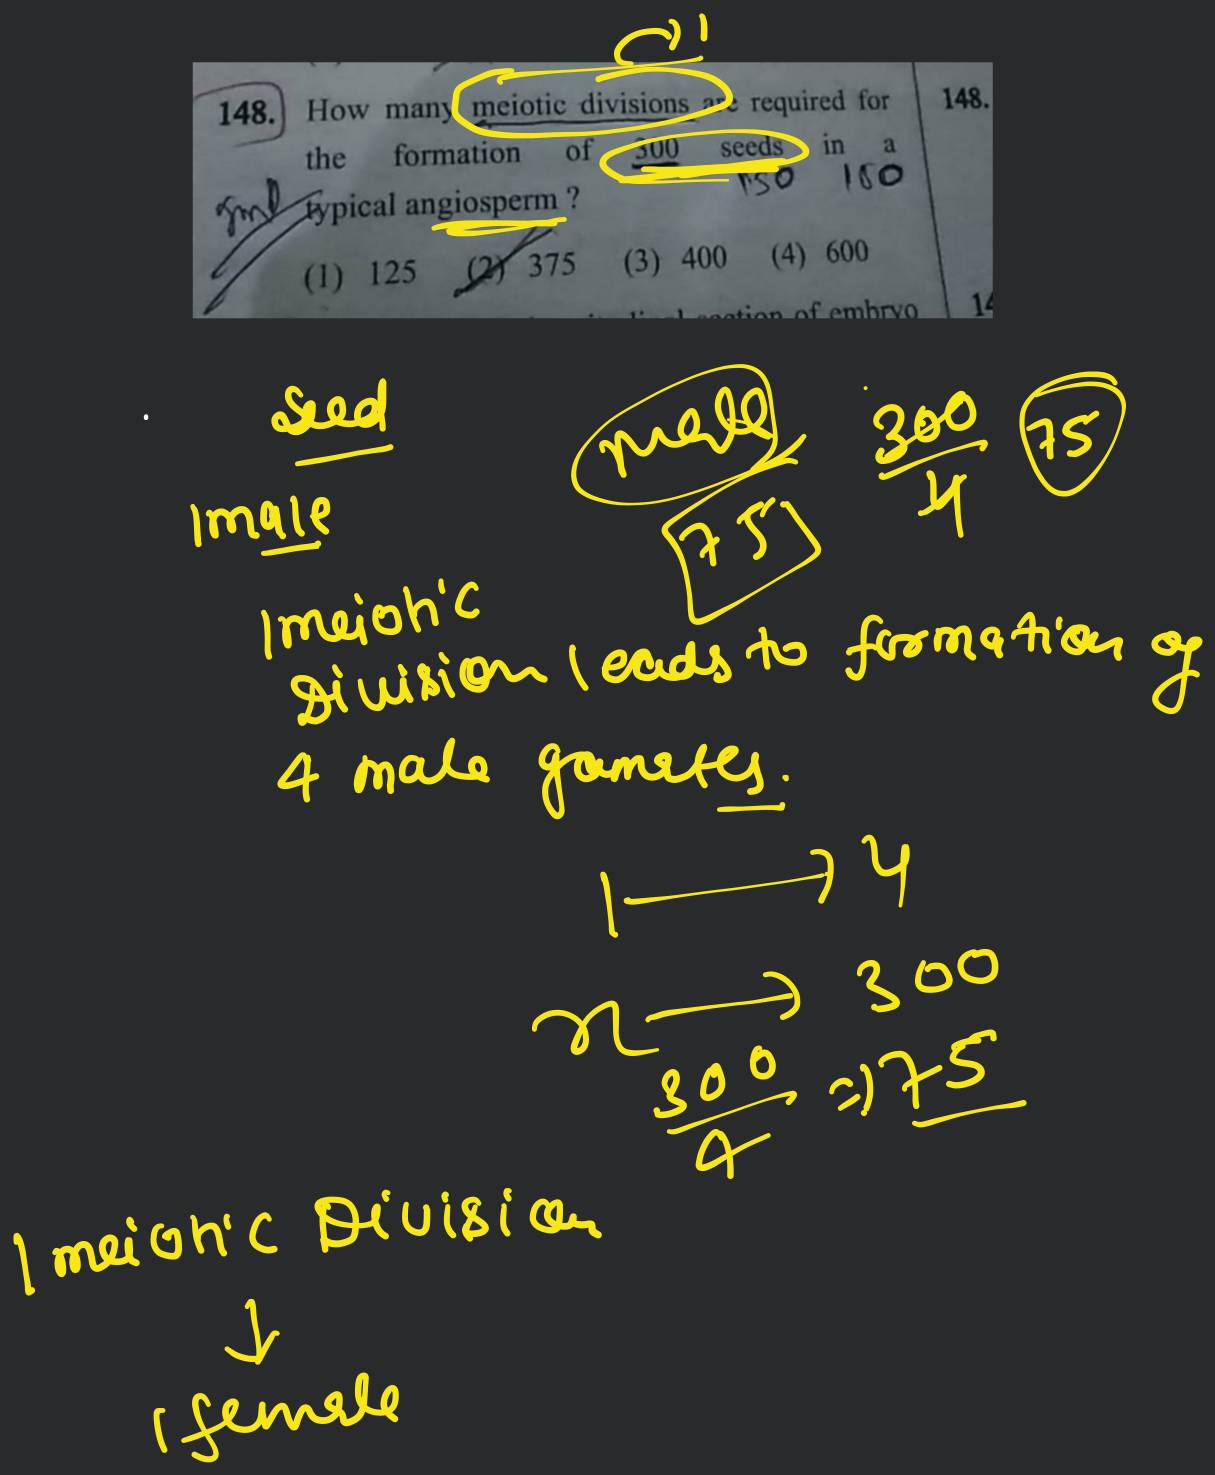 148. How many meiotic divisions are required for
the formation of 300 seeds in a
150 150
typical angiosperm ?
(1) 125 (2) 375 (3) 400 (4) 600
148.
14
Seed
male
300
4
75
1 male
75
1 meiotic
Division leads to formation of
4 male gametes.
1 → 4
x → 300
300
4
⇒ 75
1 meiotic Division
↓
1 female